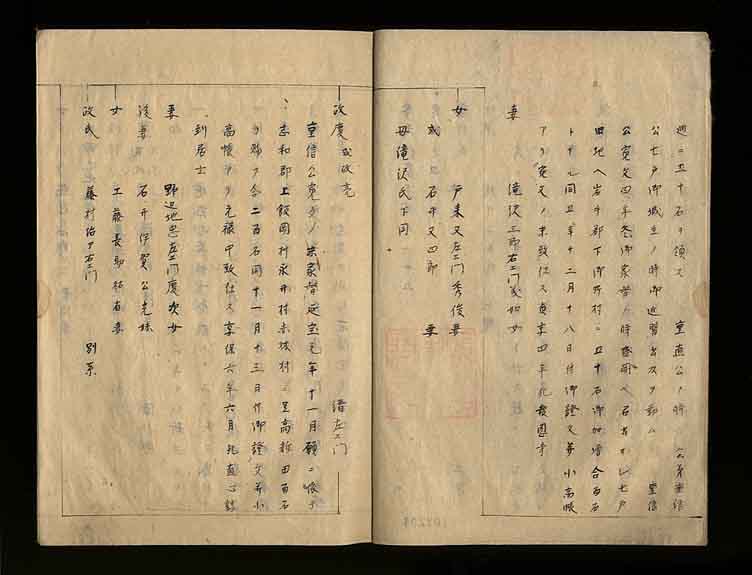 迎ニ五十石ヲ領ス 重直公ノ時 公弟重信
公七戸御城主ノ時御近習 ヲ勤ム 重信
公寛文四年冬御家督ノ時盛岡ヘ召 七戸
旧地ヘ岩井郡下 村ニ五十石御加増合百石
トナル同五年十二月十八日付御證文并小高帳
アリ寛文ノ末致仕ス貞享四年死 恩寺
妻 滝沢三郎右エ門義如女
女 戸来又左エ門秀俊妻
或 石井又四郎 妻
母滝沢氏下同
政慶 或政充 清左エ門
重信公寛文ノ末家督延宝元年十一月願ニ依テ
志和郡上飯岡村永井村赤坂村ニ 高新田百石
ヲ賜ヲ合二百石同十一月十三日付御證文并小
高帳アリ元禄中致仕ス享保六年六月死 心
到居士
妻 野辺地忠左エ門慶次女
後妻 石井伊賀公克妹
女 工藤長助祐 妻
政氏 藤村治 右エ門 別系